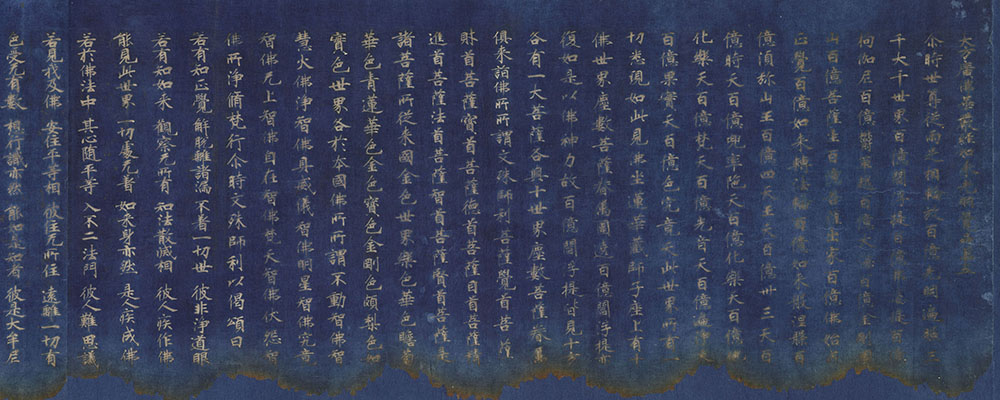 大方廣佛華嚴經如來光明覺品第五
尒時世尊從兩足相輪放百億光明遍照三
千大千世界百億閻浮提百億弗婆提百億
拘伽尼百億欝單越百億大海百億金剛圍
山百億菩薩生百億菩薩出家百億佛始成
正覺百億如來轉法輪百億如來般涅槃百
億須弥山王百億四天王天百億卅三天百
億時天百億兜率陁天百億化樂天百億他
化樂天百億梵天百億光音天百億遍淨天
百億果實天百億色究竟天此世界所有一
切悉現如此見佛坐蓮華藏師子座上有十
佛世界塵數菩薩眷属圍遶百億閻浮提亦
復如是以佛神力故百億閻浮提皆見十方
各有一大菩薩各與十世界塵數菩薩眷属
俱來詣佛所所謂文殊師利菩薩覺首菩薩
財首菩薩寶首菩薩德首菩薩目首菩薩
進首菩薩法首菩薩智首菩薩賢首菩薩是
諸菩薩所從來國金色世界樂色華色瞻蔔
華色青蓮華色金色寶色金剛色頗梨色如
寶色世界各於本國佛所所謂不動智佛智
慧火佛淨智佛具威儀智佛明星智佛究竟
智佛无上智佛自在智佛梵天智佛伏怨智
佛所淨脩梵行尒時文殊師利以偈頌曰
若有知正覺 解脫離諸漏 不着一切世 彼非淨道眼
若有知如來 觀察无所有 知法散滅相 彼人疾作佛
能見此世界 一切處无著 如來身亦然 是人疾成佛
若於佛法中 其心隨平等 入不二法門 彼人難思議
若見我及佛 安住平等相 彼住无所住 遠離一切有
色受无有數 想行識亦然 能如是知者 彼是大牟尼